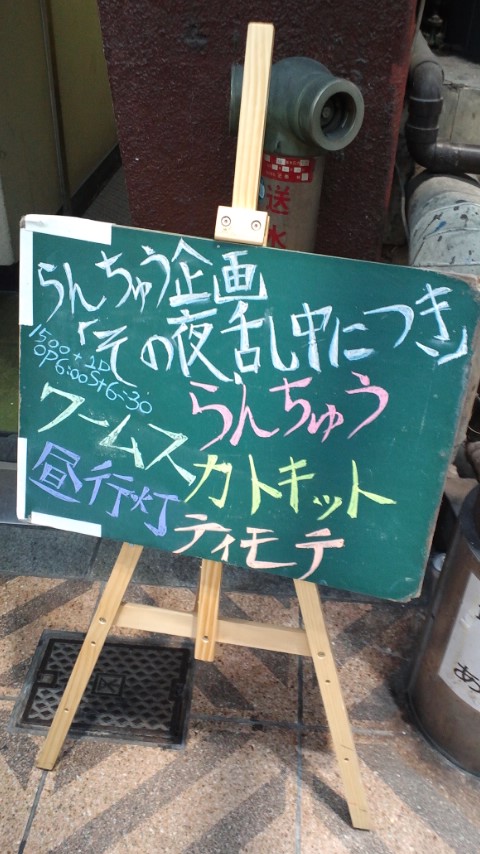 らんちゅう企画
「その夜乱中につき」
1500+1D
OP6:00 St6:30
らんちゅう
ワームス
カトキット
昼行灯
ティモテ
送水
あ